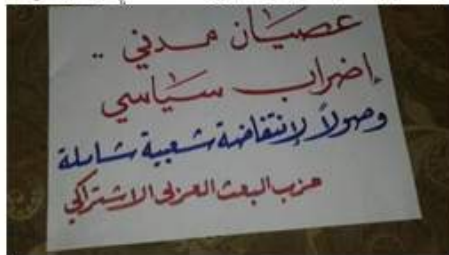 عصيان مدني ..
إضراب سياسي
وصولاً لإنتفاضة شعبية شاملة
حزب البعث العربي الاشتراكي